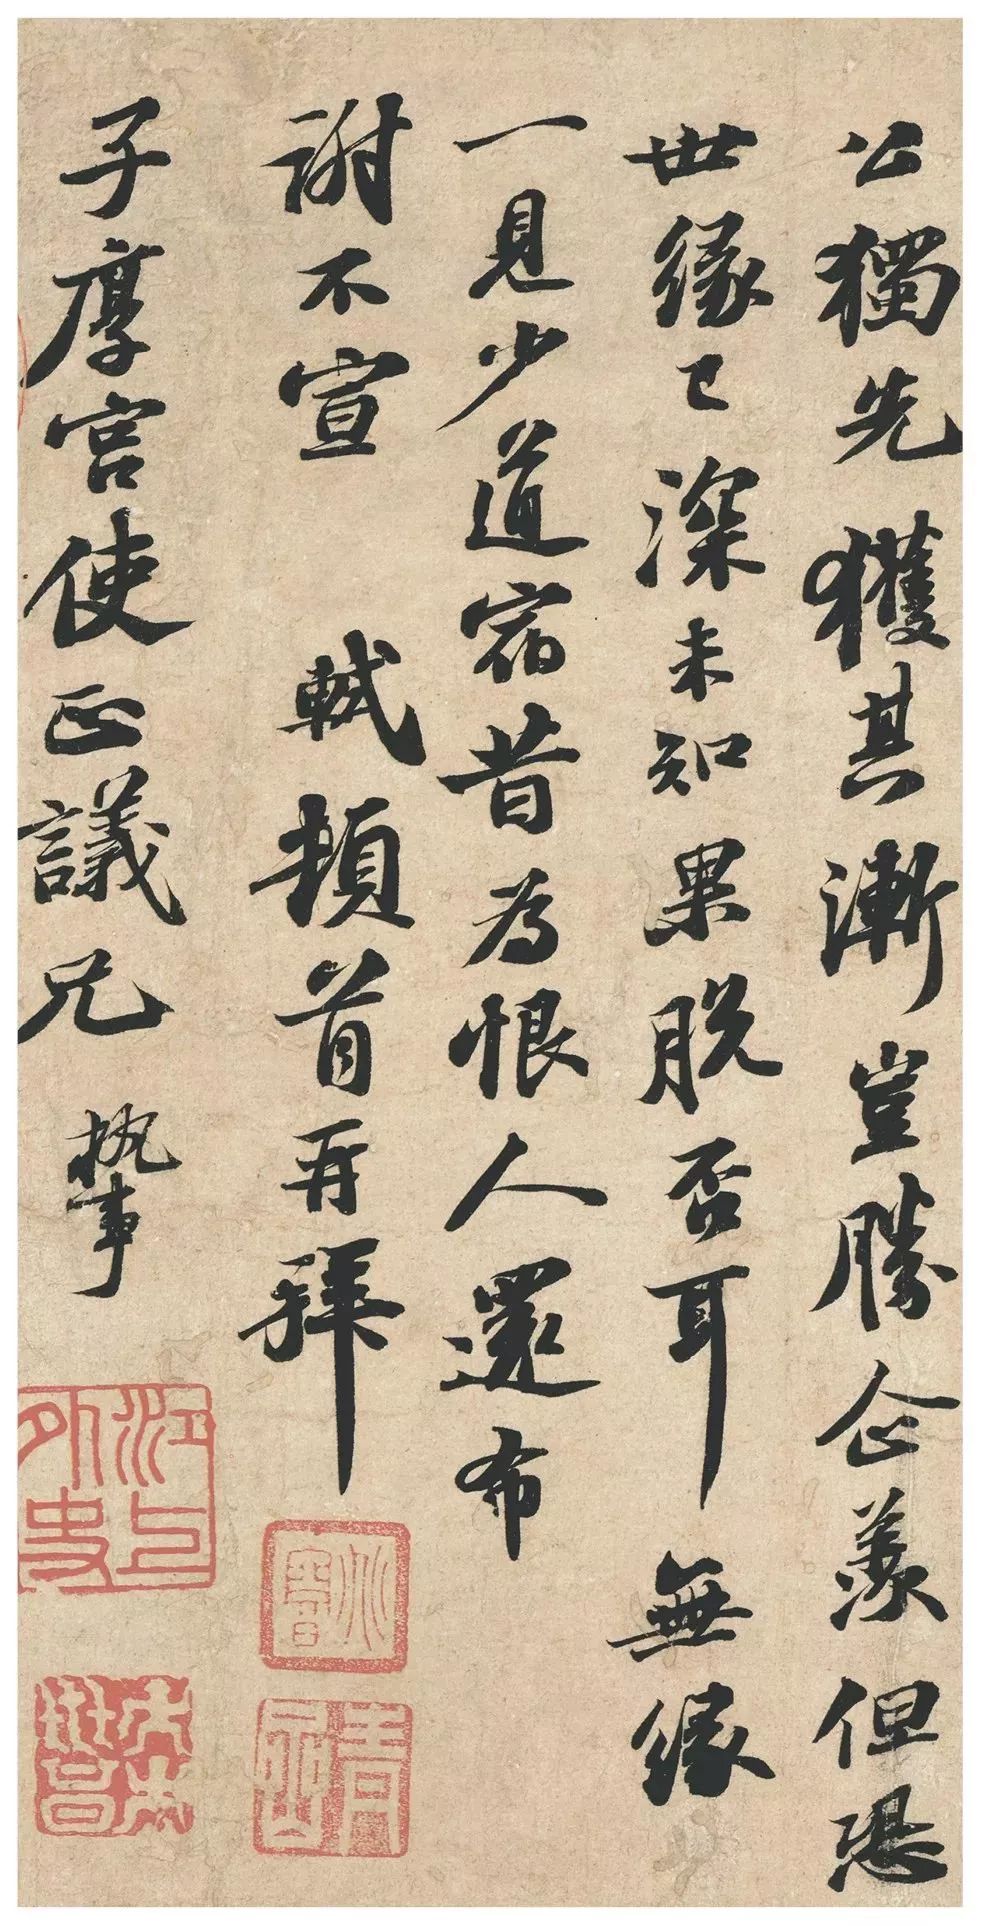 公獨先獲其漸豈勝企羨但恐
世緣已深未知果脱否耳無緣
一見少道宿昔為恨人還布
謝不宣 軾頓首再拜
子厚宫使正議兄 執事